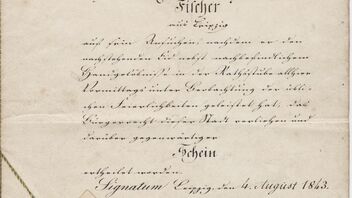 Fischer
aus Leipzig
auf sein Ansuchen, nachdem er den
nachstehenden Eid nebst nachbefindlichem
Handgelöbnisse in der Rathsstube allhier
Vormittags unter Beobachtung der übli-
chen Feierlichkeiten geleistet hat, das
Bürgerrecht dieser Stadt verliehen und
darüber gegenwärtiger
Schein
ertheilet worden.
Signatum Leipzig, den 4. August 1843.